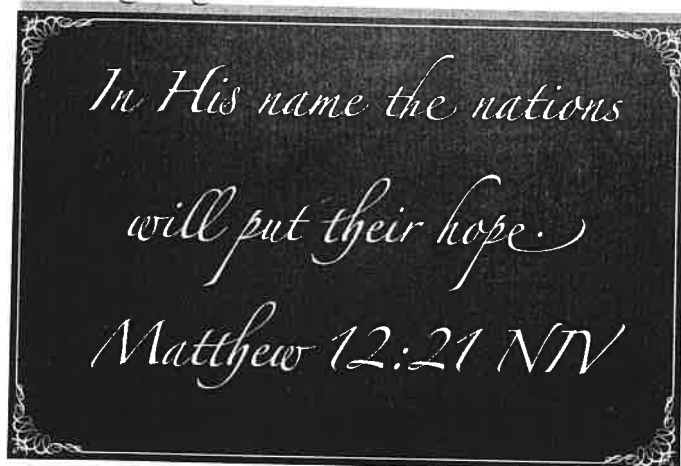 In His name the nations
will put their hope.
Matthew 12:21 NIV